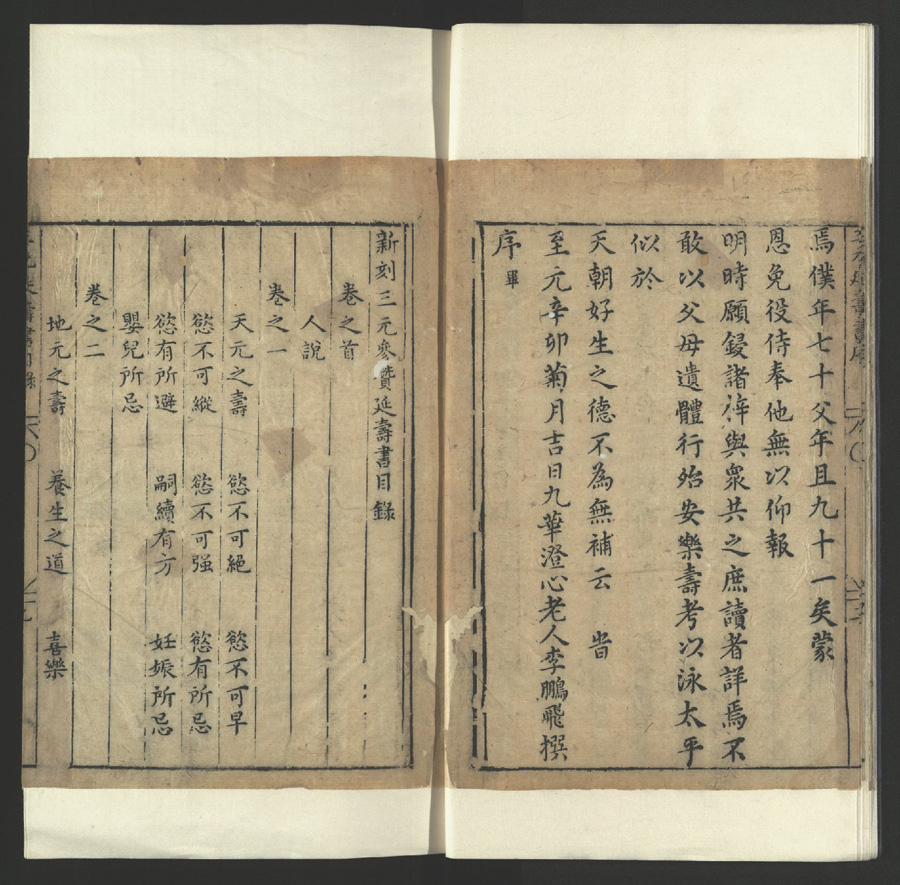 焉僕年七十父年且九十一矣蒙
恩免役侍奉他無以仰報
明時願鋟諸梓與衆共之庶讀者詳焉不
敢以父母遺體行殆安樂壽考以泳太平
似於
天朝好生之德不為無補云 旹
至元辛卯菊月吉日九華澄心老人李鵬飛撰
序 畢
新刻三元參贊延壽書目錄
卷之首
人說
卷之一
天元之壽 慾不可絕 慾不可早
慾不可縱 慾不可强 慾有所忌
慾有所避 嗣續有方 妊娠所忌
嬰兒所忌
卷之二
地元之壽 養生之道 喜樂